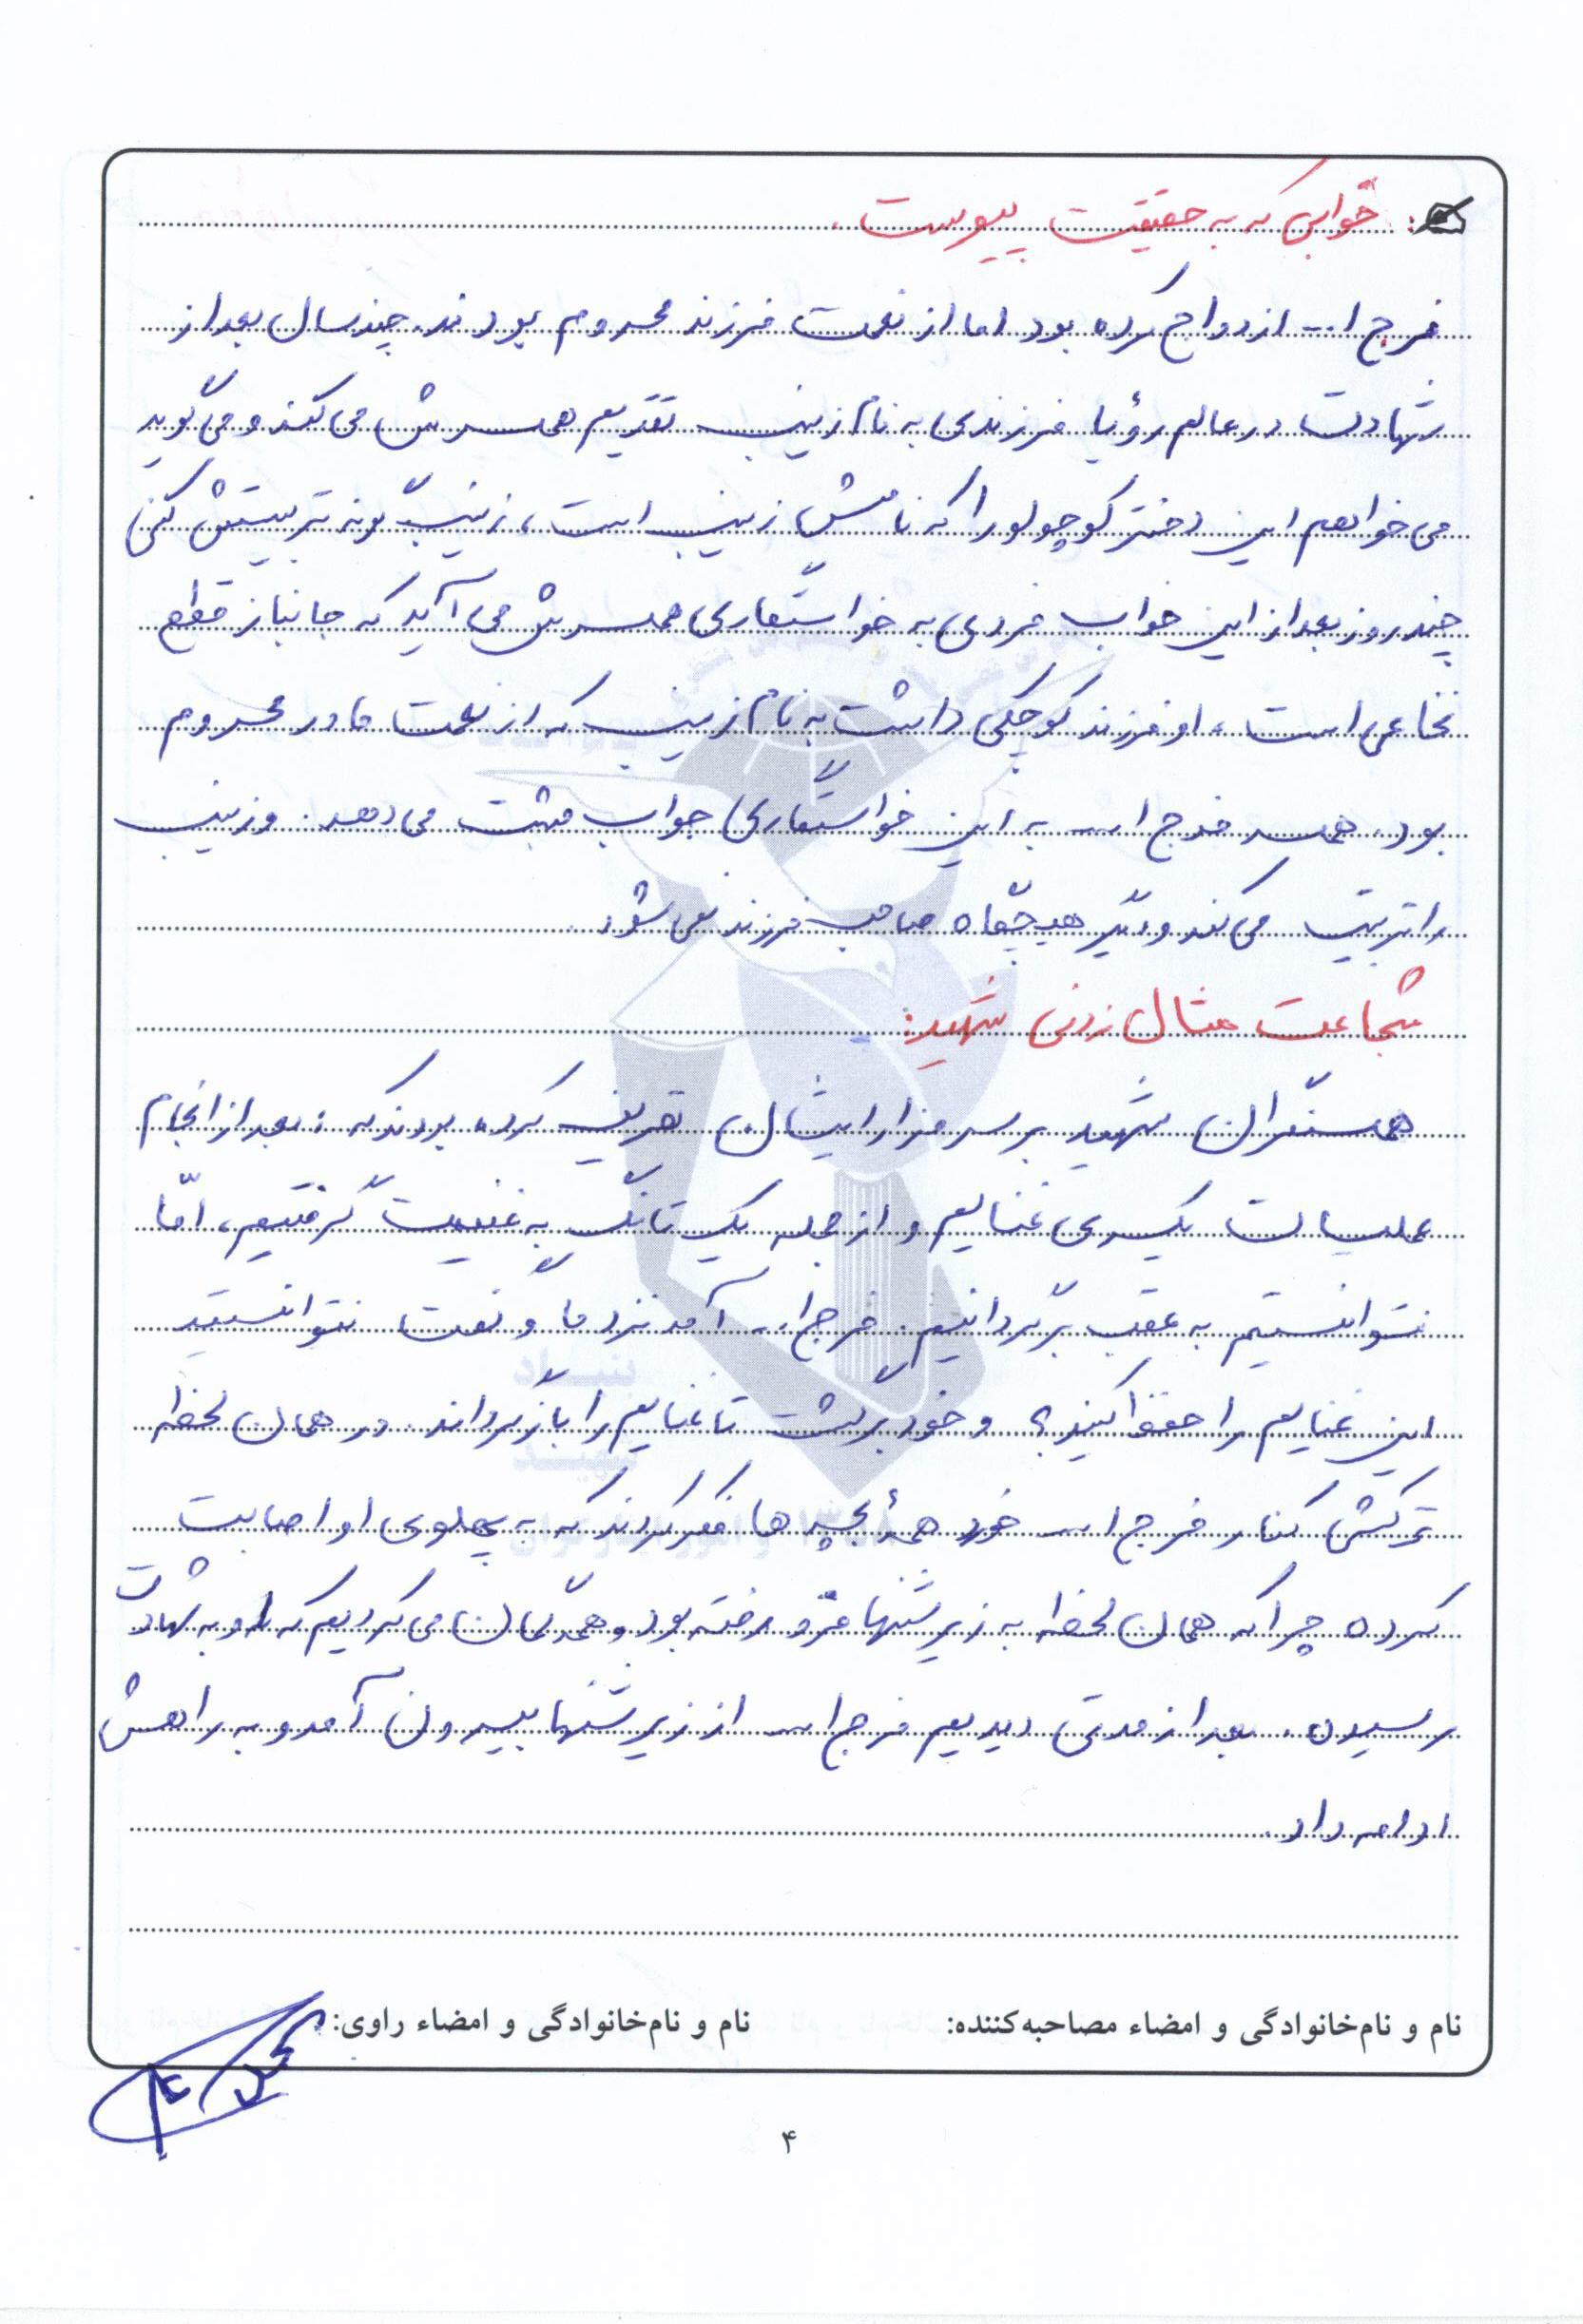 خوابی که به حقیقت پیوست.
فرج ا... ازدواج کرده بود اما از نعمت فرزند محروم بودند. چند سال بعد از
شهادت در عالم رؤیا فرزندی به نام زینب تقدیم همسرش می‌کند و می‌گوید
می‌خواهم این دختر کوچولو را که نامش زینب است، زینب‌گونه تربیتش کنی
چند روز بعد از این خواب فردی به خواستگاری همسرش می‌آید که جانباز قطع
نخاعی است، او فرزند کوچکی داشت به نام زینب که از نعمت مادر محروم
بود. همسر فرج ا... به این خواستگاری جواب مثبت می‌دهد. و زینب
را تربیت می‌کند و دیگر هیچگاه صاحب فرزند نمی‌شود.
شجاعت مثال زدنی شهید:
همسنگران شهید بر سر مزار ایشان تعریف کرده بودند که: بعد از انجام
عملیات یکسری غنایم و از جمله یک تانک به غنیمت گرفتیم، امّا
نتوانستیم به عقب برگردانیم. فرج ا... آمد نزد ما و گفت نتوانستید
این غنایم را حفظ کنید؟ و خود برگشت تا غنایم را بازگرداند. در همان لحظه
ترکش کنار فرج ا... خورد همهٔ بچه‌ها فکر کردند که به پهلوی او اصابت
کرده چرا که همان لحظه به زیر شنها فرو رفته بود و همه گمان می‌کردیم که او به شهادت
رسیده. بعد از مدتی دیدیم فرج ا... از زیر شنها بیرون آمد و به راهش
ادامه داد.
نام و نام‌خانوادگی و امضاء مصاحبه‌کننده: نام و نام‌خانوادگی و امضاء راوی:
۴